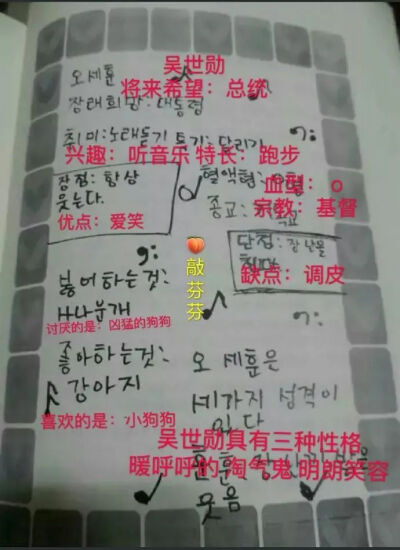 오세훈
吴世勋
将来希望：总统
장태희망: 대통령
취미:노래듣기 특기: 달리기
兴趣：听音乐 特长：跑步
장점: 항상
웃는다.
优点：爱笑
혈액형:
血型：o
종교:
宗教：基督
단점: 장난을
缺点：调皮
敲芬芬
싫어하는것:
사나운개
讨厌的是：凶猛的狗狗
좋아하는것:
강아지
喜欢的是：小狗狗
오 세훈은
세가지 성격이
있다
吴世勋具有三种性格
暖呼呼的 淘气鬼 明朗笑容
웃음